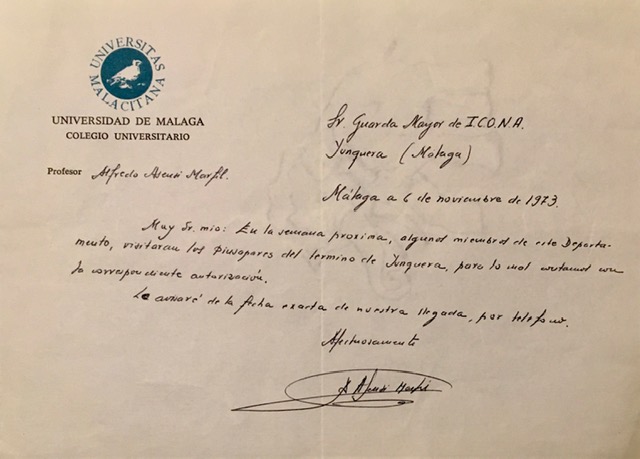 UNIVERSITAS MALACITANA
UNIVERSIDAD DE MALAGA
COLEGIO UNIVERSITARIO
Profesor Alfredo Asensi Marfil.
Sr. Guarda Mayor de I.C.O.N.A.
Yunquera (Malaga)
Málaga a 6 de noviembre de 1973.
Muy Sr. mio: En la semana proxima, algunos miembros de este Departa-
mento, visitaran los Pinsapares del termino de Yunquera, para lo cual contamos con
la correspondiente autorización.
Le avisaré de la fecha exacta de nuestra llegada, por telefono.
Afectuosamente
A Asensi Marfil